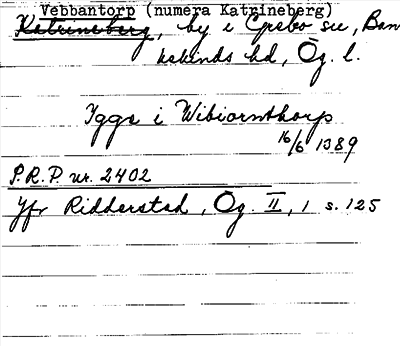 Vebbantorp (numera Katrineberg)
Katrineberg, by i Grebo sn, Ban
kekinds hd, Ög. l.
Iggs i Wibiornthorp
16/6 1389
P.R.P. nr. 2402
Jfr Ridderstad, Ög. II, 1 s. 125